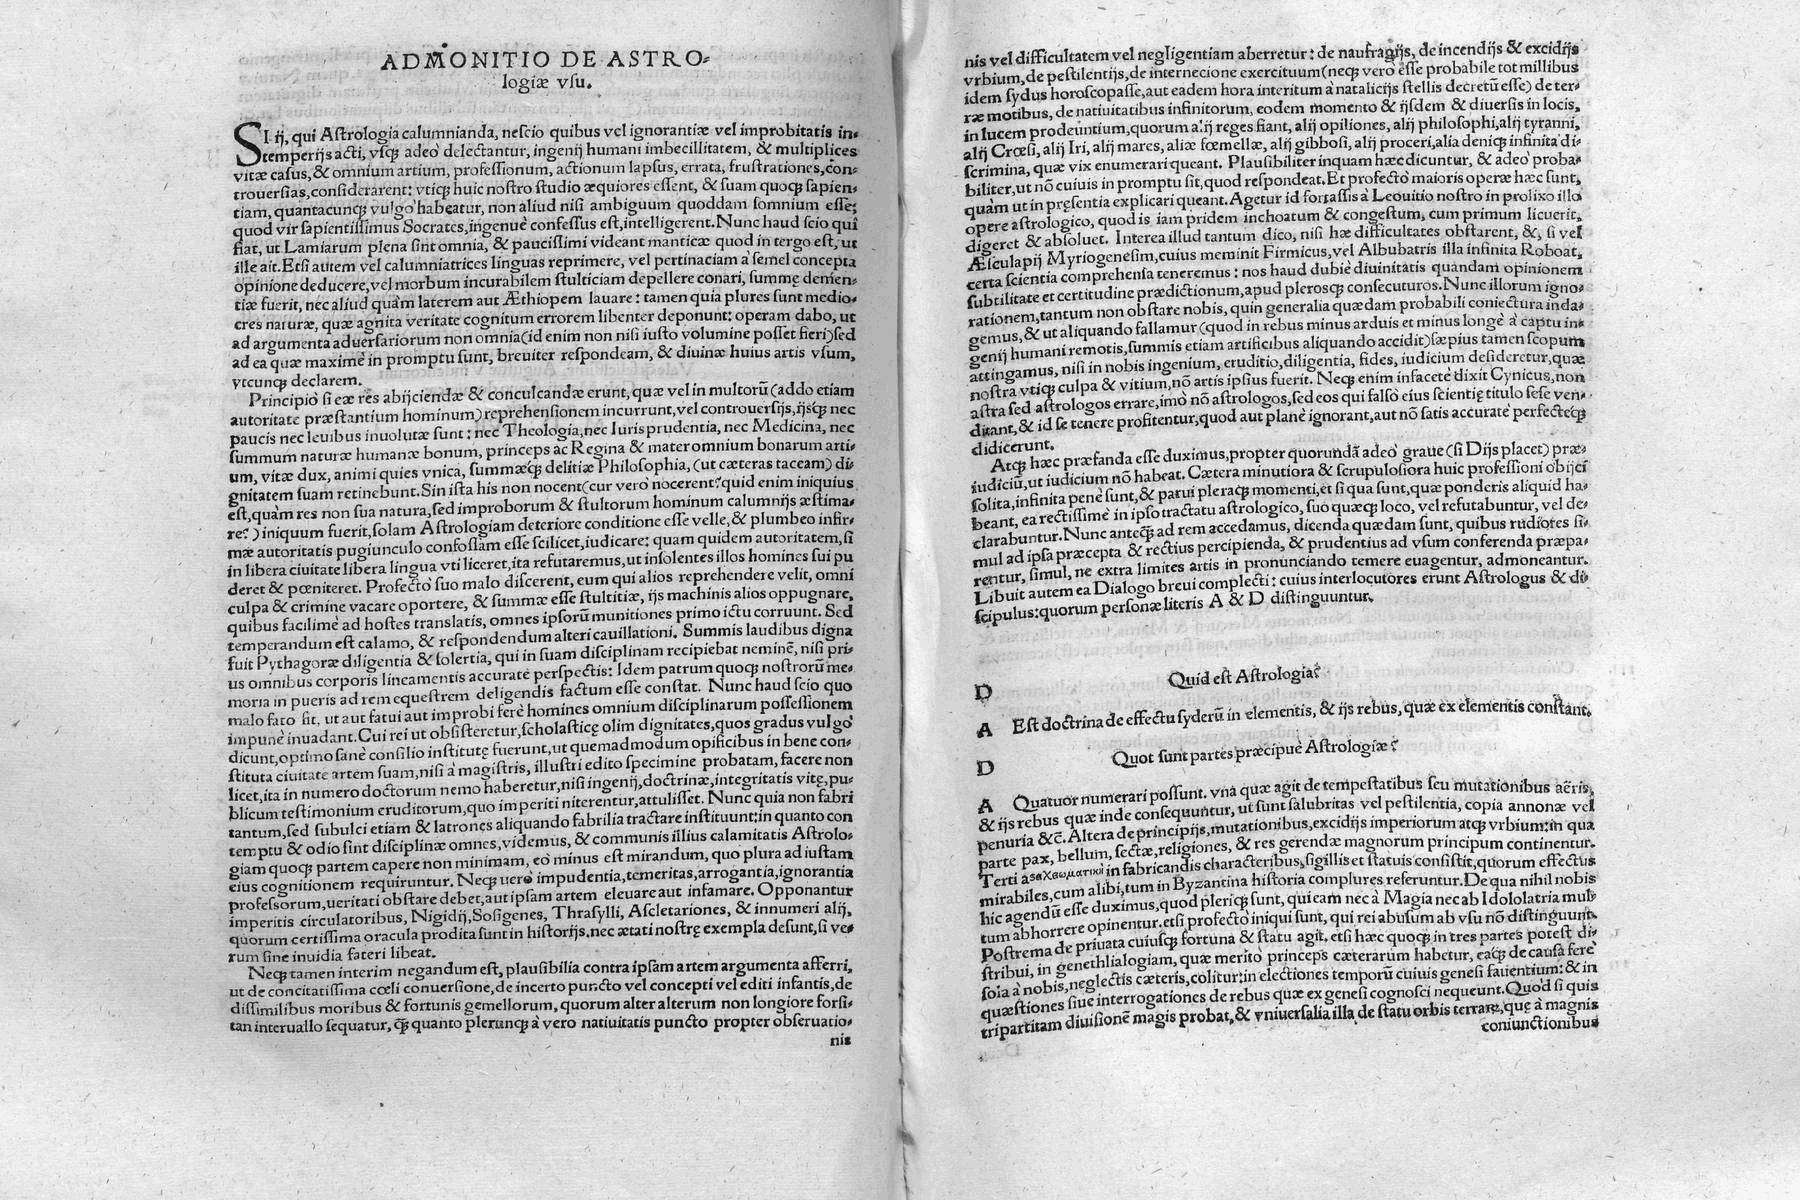 ADMONITIO DE ASTRO-
logiæ vsu.
SI ij, qui Astrologia calumnianda, nescio quibus vel ignorantiæ vel improbitatis in-
temperijs acti, vsq; adeò delectantur, ingenij humani imbecillitatem, & multiplices
vitæ casus, & omnium artium, professionum, actionum lapsus, errata, frustrationes, con-
trouersias, considerarent: vtiq; huic nostro studio æquiores essent, & suam quoq; sapien-
tiam, quantacunq; vulgò habeatur, non aliud nisi ambiguum quoddam somnium esse;
quod vir sapientissimus Socrates, ingenuè confessus est, intelligerent. Nunc haud scio quî
fiat, ut Lamiarum plena sint omnia, & paucissimi videant manticæ quod in tergo est, ut
ille ait. Etsi autem vel calumniatrices linguas reprimere, vel pertinaciam à semel concepta
opinione deducere, vel morbum incurabilem stulticiam depellere conari, summę demen-
tiæ fuerit, nec aliud quàm laterem aut Æthiopem lauare: tamen quia plures sunt medio-
cres naturæ, quæ agnita veritate cognitum errorem libenter deponunt: operam dabo, ut
ad argumenta aduersariorum non omnia (id enim non nisi iusto volumine posset fieri) sed
ad ea quæ maximè in promptu sunt, breuiter respondeam, & diuinæ huius artis vsum,
vtcunq; declarem.
Principiò si eæ res abijciendæ & conculcandæ erunt, quæ vel in multorũ (addo etiam
autoritate præstantium hominum) reprehensionem incurrunt, vel controuersijs, ijsq; nec
paucis nec leuibus inuolutæ sunt: nec Theologia, nec Iurisprudentia, nec Medicina, nec
summum naturæ humanæ bonum, princeps ac Regina & mater omnium bonarum arti-
um, vitæ dux, animi quies vnica, summæq; delitiæ Philosophia, (ut cæteras taceam) di-
gnitatem suam retinebunt. Sin ista his non nocent (cur verò nocerent? quid enim iniquius
est, quàm res non sua natura, sed improborum & stultorum hominum calumnijs æstima-
re?) iniquum fuerit, solam Astrologiam deteriore conditione esse velle, & plumbeo infir-
mæ autoritatis pugiunculo confossam esse scilicet, iudicare: quam quidem autoritatem, si
in libera ciuitate libera lingua vti liceret, ita refutaremus, ut insolentes illos homines sui pu
deret & pœniteret. Profectò suo malo discerent, eum qui alios reprehendere velit, omni
culpa & crimine vacare oportere, & summæ esse stultitiæ, ijs machinis alios oppugnare,
quibus facilimè ad hostes translatis, omnes ipsorũ munitiones primo ictu corruunt. Sed
temperandum est calamo, & respondendum alteri cauillationi. Summis laudibus digna
fuit Pythagoræ diligentia & solertia, qui in suam disciplinam recipiebat neminẽ, nisi pri-
us omnibus corporis lineamentis accuratè perspectis: Idem patrum quoq; nostrorũ me-
moria in pueris ad rem equestrem deligendis factum esse constat. Nunc haud scio quo
malo fato sit, ut aut fatui aut improbi ferè homines omnium disciplinarum possessionem
impunè inuadant. Cui rei ut obsisteretur, scholasticę olim dignitates, quos gradus vulgò
dicunt, optimo sanè consilio institutę fuerunt, ut quemadmodum opificibus in bene con-
stituta ciuitate artem suam, nisi à magistris, illustri edito specimine probatam, facere non
licet, ita in numero doctorum nemo haberetur, nisi ingenij, doctrinæ, integritatis vitę, pu-
blicum testimonium eruditorum, quo imperiti niterentur, attulisset. Nunc quia non fabri
tantum, sed subulci etiam & latrones aliquando fabrilia tractare instituunt: in quanto con
temptu & odio sint disciplinæ omnes, videmus, & communis illius calamitatis Astrolo-
giam quoq; partem capere non minimam, eò minus est mirandum, quo plura ad iustam
eius cognitionem requiruntur. Neq; uerò impudentia, temeritas, arrogantia, ignorantia
professorum, ueritati obstare debet, aut ipsam artem eleuare aut infamare. Opponantur
imperitis circulatoribus, Nigidij, Sosigenes, Thrasylli, Ascletariones, & innumeri alij,
quorum certissima oracula prodita sunt in historijs, nec ætati nostrę exempla desunt, si ve-
rum sine inuidia fateri libeat.
Neq; tamen interim negandum est, plausibilia contra ipsam artem argumenta afferri,
ut de concitatissima cœli conuersione, de incerto puncto vel concepti vel editi infantis, de
dissimilibus moribus & fortunis gemellorum, quorum alter alterum non longiore forsi-
tan interuallo sequatur, q̃ quanto plerunq; à vero natiuitatis puncto propter obseruatio-
nis
nis vel difficultatem vel negligentiam aberretur: de naufragijs, de incendijs & excidijs
vrbium, de pestilentijs, de internecione exercituum (neq; verò esse probabile tot millibus
idem sydus horoscopasse, aut eadem hora interitum à natalicijs stellis decretũ esse) de ter-
ræ motibus, de natiuitatibus infinitorum, eodem momento & ijsdem & diuersis in locis,
in lucem prodeuntium, quorum alij reges fiant, alij opiliones, alij philosophi, alij tyranni,
alij Crœsi, alij Iri, alij mares, aliæ fœmellæ, alij gibbosi, alij proceri, alia deniq; infinita di-
scrimina, quæ vix enumerari queant. Plausibiliter inquam hæc dicuntur, & adeò proba-
biliter, ut nõ cuiuis in promptu sit, quod respondeat. Et profectò maioris operæ hæc sunt,
quàm ut in pręsentia explicari queant. Agetur id fortassis à Leouitio nostro in prolixo illo
opere astrologico, quod is iam pridem inchoatum & congestum, cum primum licuerit,
digeret & absoluet. Interea illud tantum dico, nisi hæ difficultates obstarent, &, si vel
Æsculapij Myriogenesim, cuius meminit Firmicus, vel Albubatris illa infinita Roboat,
certa scientia comprehensa teneremus: nos haud dubiè diuinitatis quandam opinionem
subtilitate et certitudine prædictionum, apud plerosq; consecuturos. Nunc illorum igno-
rationem, tantum non obstare nobis, quin generalia quædam probabili coniectura inda-
gemus, & ut aliquando fallamur (quod in rebus minus arduis et minus longè à captu in-
genij humani remotis, summis etiam artificibus aliquando accidit) sæpius tamen scopum
attingamus, nisi in nobis ingenium, eruditio, diligentia, fides, iudicium desideretur, quæ
nostra vtiq; culpa & vitium, nõ artis ipsius fuerit. Neq; enim infacetè dixit Cynicus, non
astra sed astrologos errare, imò nõ astrologos, sed eos qui falsò eius scientię titulo sese ven-
ditant, & id se tenere profitentur, quod aut planè ignorant, aut nõ satis accuratè perfecteq;
didicerunt.
Atq; hæc præfanda esse duximus, propter quorundã adeò graue (si Dijs placet) præ-
iudiciũ, ut iudicium nõ habeat. Cætera minutiora & scrupulosiora huic professioni obijci
solita, infinita penè sunt, & parui pleraq; momenti, et si qua sunt, quæ ponderis aliquid ha-
beant, ea rectissimè in ipso tractatu astrologico, suo quæq; loco, vel refutabuntur, vel de-
clarabuntur. Nunc anteq̃ ad rem accedamus, dicenda quædam sunt, quibus rudiores si-
mul ad ipsa præcepta & rectius percipienda, & prudentius ad vsum conferenda præpa-
rentur, simul, ne extra limites artis in pronunciando temere euagentur, admoneantur.
Libuit autem ea Dialogo breui complecti: cuius interlocutores erunt Astrologus & di-
scipulus: quorum personæ literis A & D distinguuntur.
D Quid est Astrologia?
A Est doctrina de effectu syderũ in elementis, & ijs rebus, quæ ex elementis constant.
D Quot sunt partes præcipuè Astrologiæ?
A Quatuor numerari possunt. vna quæ agit de tempestatibus seu mutationibus aëris,
& ijs rebus quæ inde consequuntur, ut sunt salubritas vel pestilentia, copia annonæ vel
penuria &c̃. Altera de principijs, mutationibus, excidijs imperiorum atq; vrbium: in qua
parte pax, bellum, sectæ, religiones, & res gerendæ magnorum principum continentur.
Terti a in fabricandis characteribus, sigillis et statuis consistit, quorum effectus
mirabiles, cum alibi, tum in Byzantina historia complures referuntur. De qua nihil nobis
hic agendũ esse duximus, quod pleriq; sunt, qui eam nec à Magia nec ab Idololatria mul-
tum abhorrere opinentur. etsi profectò iniqui sunt, qui rei abusum ab vsu nõ distinguunt.
Postrema de priuata cuiusq; fortuna & statu agit. etsi hæc quoq; in tres partes potest di-
stribui, in genethlialogiam, quæ meritò princeps cæterarum habetur, eaq; de causa ferè
sola à nobis, neglectis cæteris, colitur: in electiones temporũ cuiuis genesi fauentium: & in
quæstiones siue interrogationes de rebus quæ ex genesi cognosci nequeunt. Quòd si quis
tripartitam diuisionẽ magis probat, & vniuersalia illa de statu orbis terrarę, quę à magnis
coniunctionibus